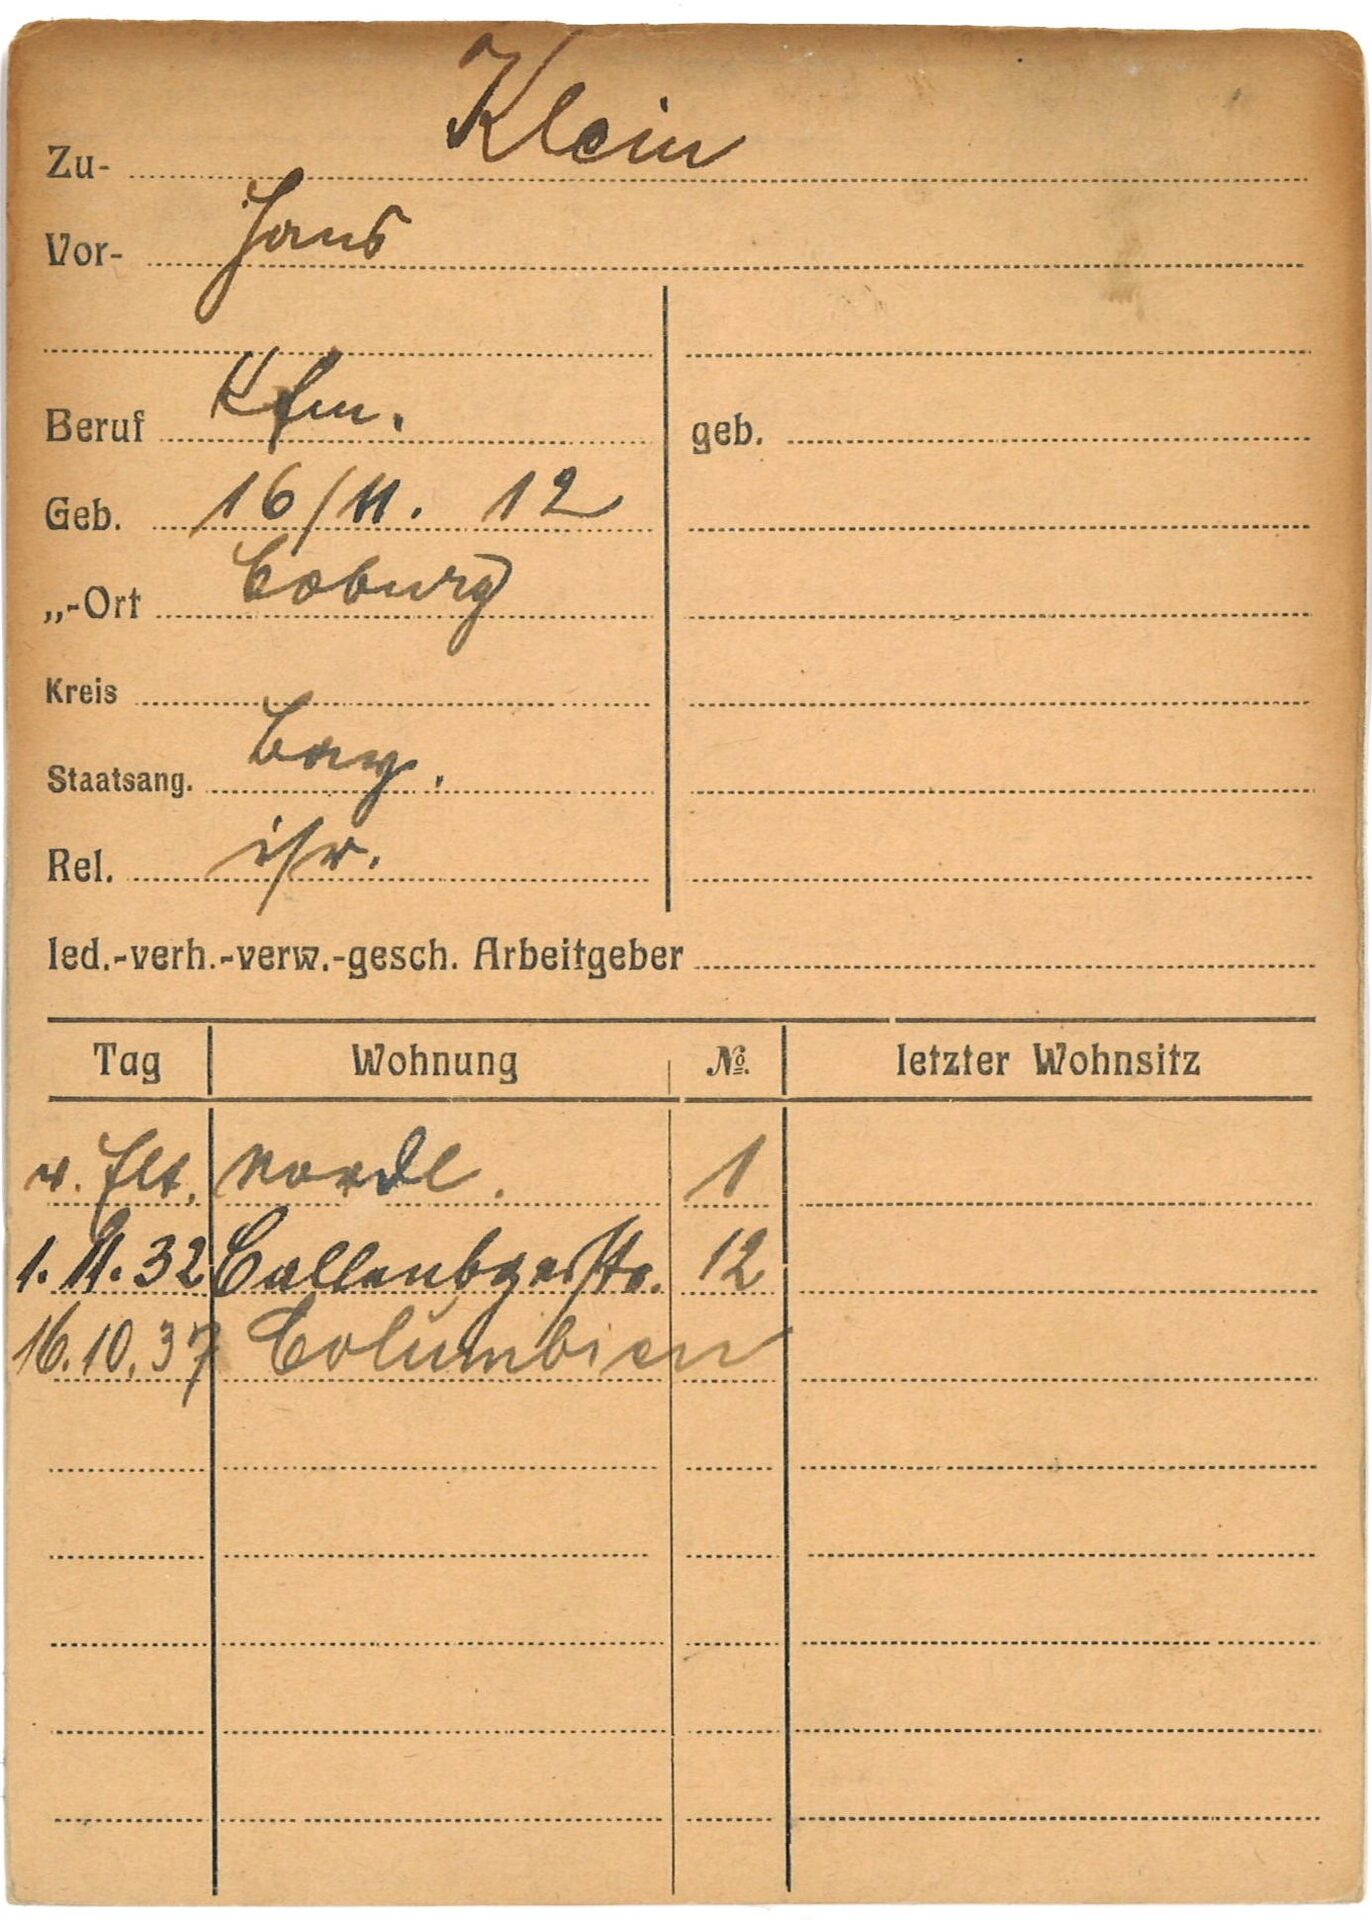 Zu- Klein
Vor- Hans
Beruf Kfm. geb.
Geb. 16/11. 12
„-Ort Coburg
Kreis
Staatsang. bay.
Rel. isr.
led.-verh.-verw.-gesch. Arbeitgeber
Tag Wohnung No. letzter Wohnsitz
v. Elt. Nordl. 1
1.11.32 Callenbgerstr. 12
16.10.37 Columbien